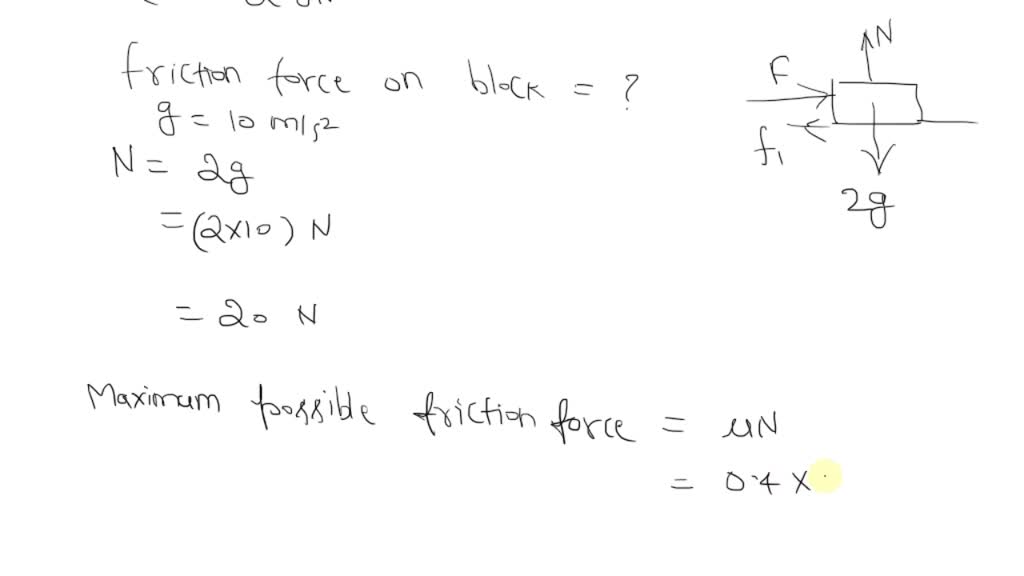 friction force on block = ?
g = 10 m/s2
N = 2g
= (2×10) N
= 20 N
Maximum possible friction force = μN
= 0.4 ×
N
F
f1
2g